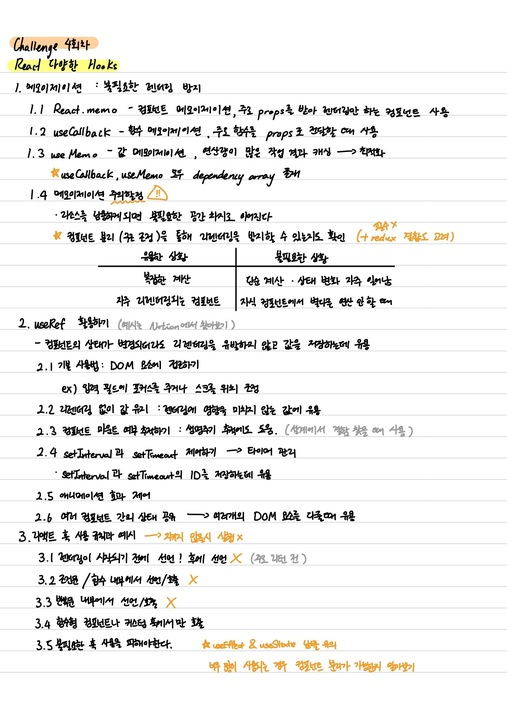 Challenge 4회차
React 다양한 Hooks
1. 메모이제이션 : 불필요한 렌더링 방지
1.1 React.memo - 컴포넌트 메모이제이션, 주로 props를 받아 렌더링만 하는 컴포넌트 사용
1.2 useCallback - 함수 메모이제이션, 주로 함수를 props로 전달할 때 사용
1.3 useMemo - 값 메모이제이션, 연산량이 많은 작업 결과 캐싱 → 최적화
★ useCallback, useMemo 모두 dependency array 존재
1.4 메모이제이션 주의할점 !!
· 리소스를 남용하게 되면 불필요한 공간 차지로 이어진다
필수 X
★ 컴포넌트 분리 (구조 조정)을 통해 리렌더링을 방지할 수 있는지도 확인 (+ redux 결합도 고려)
유용한 상황 불필요한 상황
복잡한 계산 단순 계산 · 상태 변화 자주 일어남
자주 리렌더링되는 컴포넌트 자식 컴포넌트에서 별다른 연산 안 할 때
2. useRef 활용하기 (예시는 Notion에서 찾아보기)
- 컴포넌트의 상태가 변경되더라도 리렌더링을 유발하지 않고 값을 저장하는데 유용
2.1 기본 사용법 : DOM 요소에 접근하기
ex) 입력 필드에 포커스를 주거나 스크롤 위치 조정
2.2 리렌더링 없이 값 유지 : 렌더링에 영향을 미치지 않는 값에 유용
2.3 컴포넌트 마운트 여부 추적하기 : 생명주기 추적에도 도움. (설계에서 결함 찾을 때 사용)
2.4 setInterval과 setTimeout 제어하기 → 타이머 관리
· setInterval과 setTimeout의 ID를 저장하는데 유용
2.5 애니메이션 효과 제어
2.6 여러 컴포넌트 간의 상태 공유 → 여러개의 DOM 요소를 다룰 때 유용
3. 리액트 훅 사용 규칙과 예시 → 지키지 않을시 실행 X
3.1 렌더링이 시작되기 전에 선언! 후에 선언 X (주로 리턴 전)
3.2 조건문 / 함수 내부에서 선언/호출 X
3.3 반복문 내부에서 선언/호출 X
3.4 함수형 컴포넌트나 커스텀 훅에서만 호출
3.5 불필요한 훅 사용을 피해야한다. ★ useEffect & useState 남용 유의
너무 많이 사용되는 경우 컴포넌트 분리가 가능한지 알아보기